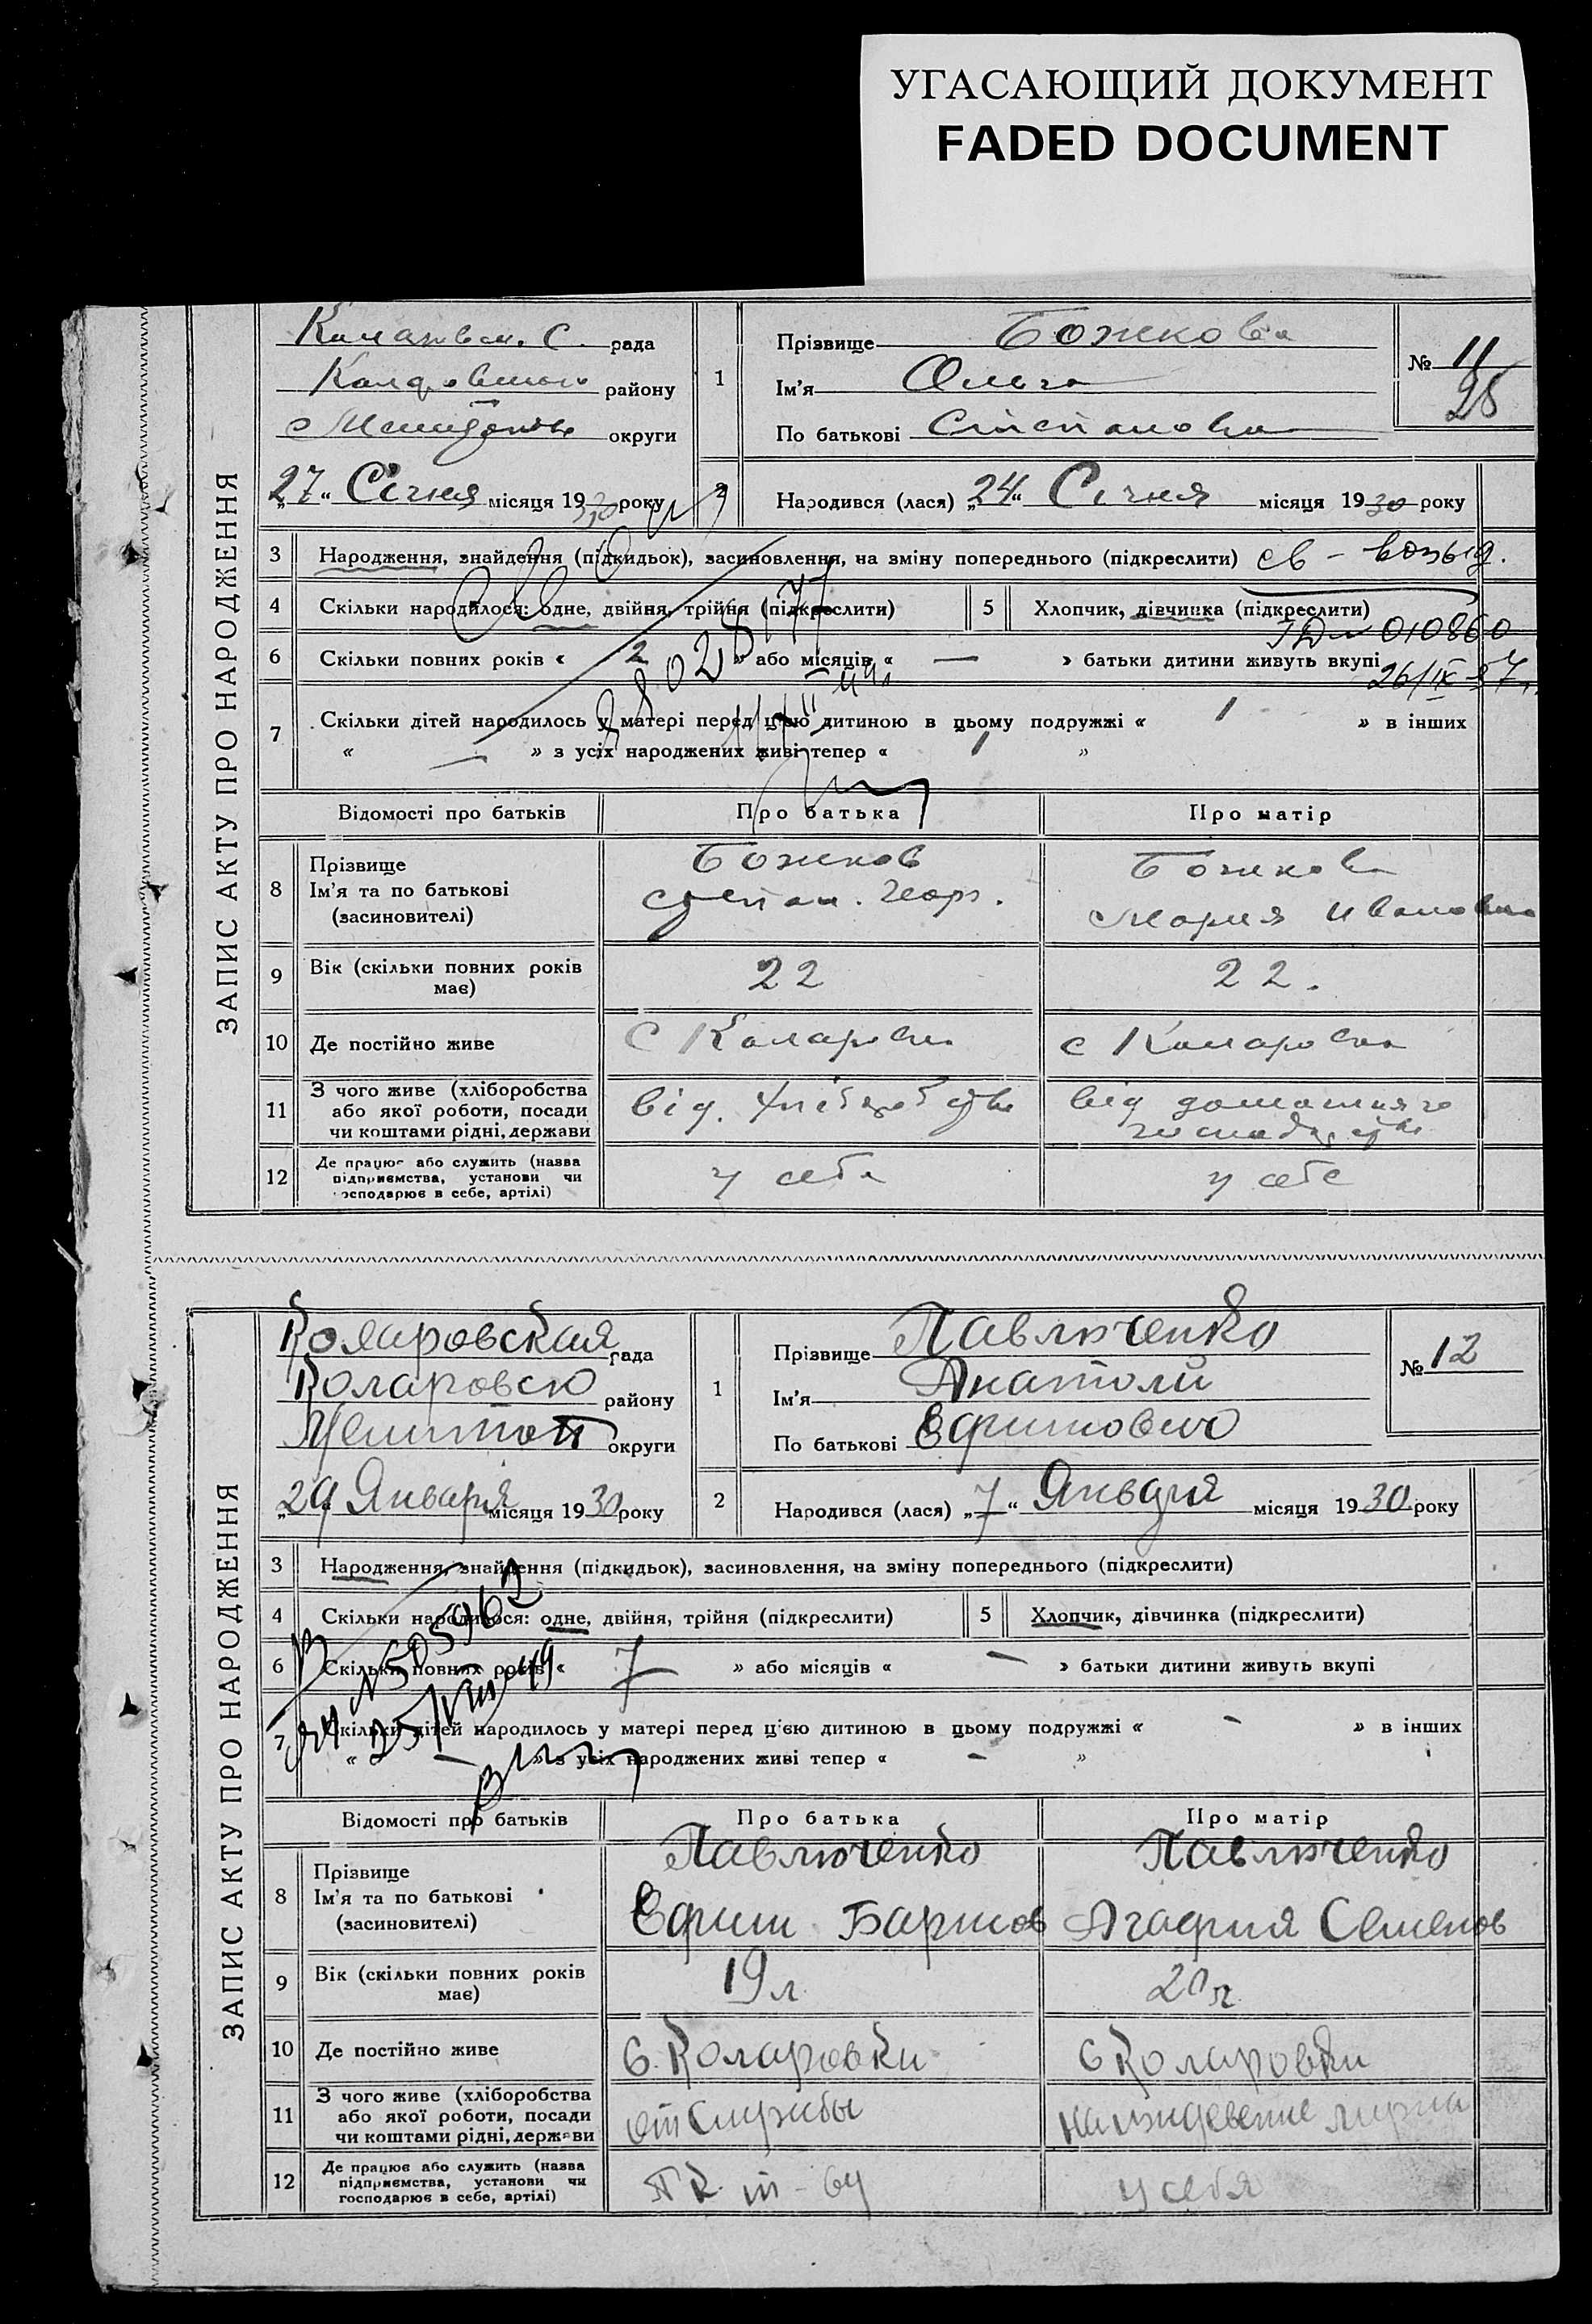 УГАСАЮЩИЙ ДОКУМЕНТ
FADED DOCUMENT
ЗАПИС АКТУ ПРО НАРОДЖЕННЯ
С. рада
району
округи
„27“ Січня місяця 1930 року
1
Прізвище Божкова
Ім'я Ольга
По батькові Степановна
№ 11
28
2
Народився (лася) „24“ Січня місяця 1930 року
3 Народження, знайдення (підкидьок), засиновлення, на зміну попереднього (підкреслити)
4 Скільки народилося: одне, двійня, трійня (підкреслити)
5 Хлопчик, дівчинка (підкреслити)
010860
26/IX 57
6 Скільки повних років « 2 » або місяців « — » батьки дитини живуть вкупі
7 Скільки дітей народилось у матері перед цією дитиною в цьому подружжі « 1 » в інших
« — » з усіх народжених живі тепер « 1 »
Відомості про батьків Про батька Про матір
8 Прізвище
Ім'я та по батькові
(засиновителі)
Божков
Степан. Геор.
Божкова
Мария Ивановна
9 Вік (скільки повних років має) 22 22.
10 Де постійно живе с Коларовка с Коларовка
11 З чого живе (хліборобства
або якої роботи, посади
чи коштами рідні, держави
від. хліборобства
від домашняго
господарства
12 Де працює або служить (назва
підприємства, установи чи
господарює в себе, артілі)
у себе
у себе
ЗАПИС АКТУ ПРО НАРОДЖЕННЯ
Коларовская рада
Коларовско району
Мелитоп округи
„29 Января місяця 1930 року
1
Прізвище Павлюченко
Ім'я Анатоли
По батькові Ефимович
№ 12
2
Народився (лася) „7“ Января місяця 1930 року
3 Народження, знайдення (підкидьок), засиновлення, на зміну попереднього (підкреслити)
4 Скільки народилося: одне, двійня, трійня (підкреслити)
5 Хлопчик, дівчинка (підкреслити)
6 Скільки повних років « 7 » або місяців « — » батьки дитини живуть вкупі
25/VIII 49
7 Скільки дітей народилось у матері перед цією дитиною в цьому подружжі « - » в інших
« — » з усіх народжених живі тепер « - »
Відомості про батьків Про батька Про матір
8 Прізвище
Ім'я та по батькові
(засиновителі)
Павлюченко
Ефим Барисов
Павлюченко
Агафия Семенов
9 Вік (скільки повних років має) 19 л 20 л
10 Де постійно живе с. Коларовки с Коларовки
11 З чого живе (хліборобства
або якої роботи, посади
чи коштами рідні, держави
от Службы
на иждевение
12 Де працює або служить (назва
підприємства, установи чи
господарює в себе, артілі)
у себя